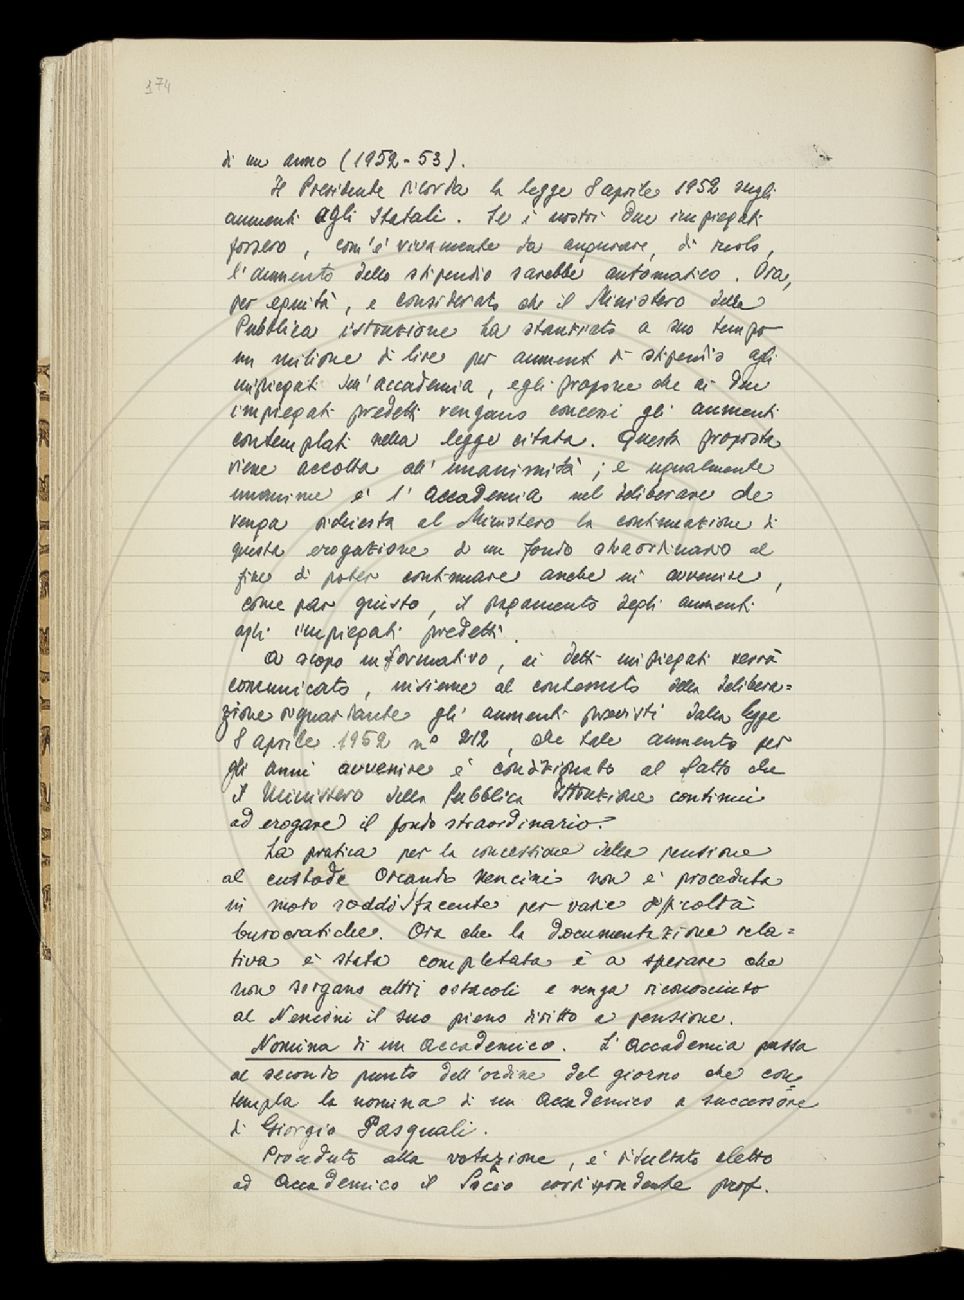 174
di un anno (1952-53).
Il Presidente ricorda la legge 8 aprile 1952 sugli
aumenti agli Statali. Se i nostri due impiegati
fossero, com'è vivamente da augurare, di ruolo,
l'aumento dello stipendio sarebbe automatico. Ora,
per equità, e considerato che il Ministero della
Pubblica istruzione ha stanziato a suo tempo
un milione di lire per aumenti di stipendio agli
impiegati dell'accademia, egli propone che ai due
impiegati predetti vengano concessi gli aumenti
contemplati nella legge citata. Questa proposta
viene accolta all'unanimità; e ugualmente
unanime è l'Accademia nel deliberare che
venga richiesta al Ministero la continuazione di
questa erogazione di un fondo straordinario al
fine di poter continuare anche in avvenire,
come par giusto, il pagamento degli aumenti
agli impiegati predetti.
A scopo informativo, ai detti impiegati verrà
comunicato, insieme al contenuto della delibera=
zione riguardante gli aumenti previsti dalla legge
8 aprile 1952 n° 212, che tale aumento per
gli anni avvenire è condizionato al fatto che
il Ministero della Pubblica Istruzione continui
ad erogare il fondo straordinario.
La pratica per la concessione della pensione
al custode Orlando Nencini non è proceduta
in modo soddisfacente per varie difficoltà
burocratiche. Ora che la documentazione rela=
tiva è stata completata è a sperare che
non sorgano altri ostacoli e venga riconosciuto
al Nencini il suo pieno diritto a pensione.
Nomina di un Accademico. L'Accademia passa
al secondo punto dell'ordine del giorno che con=
templa la nomina di un Accademico a successore
di Giorgio Pasquali.
Proceduto alla votazione, è risultato eletto
ad Accademico il Socio corrispondente prof.